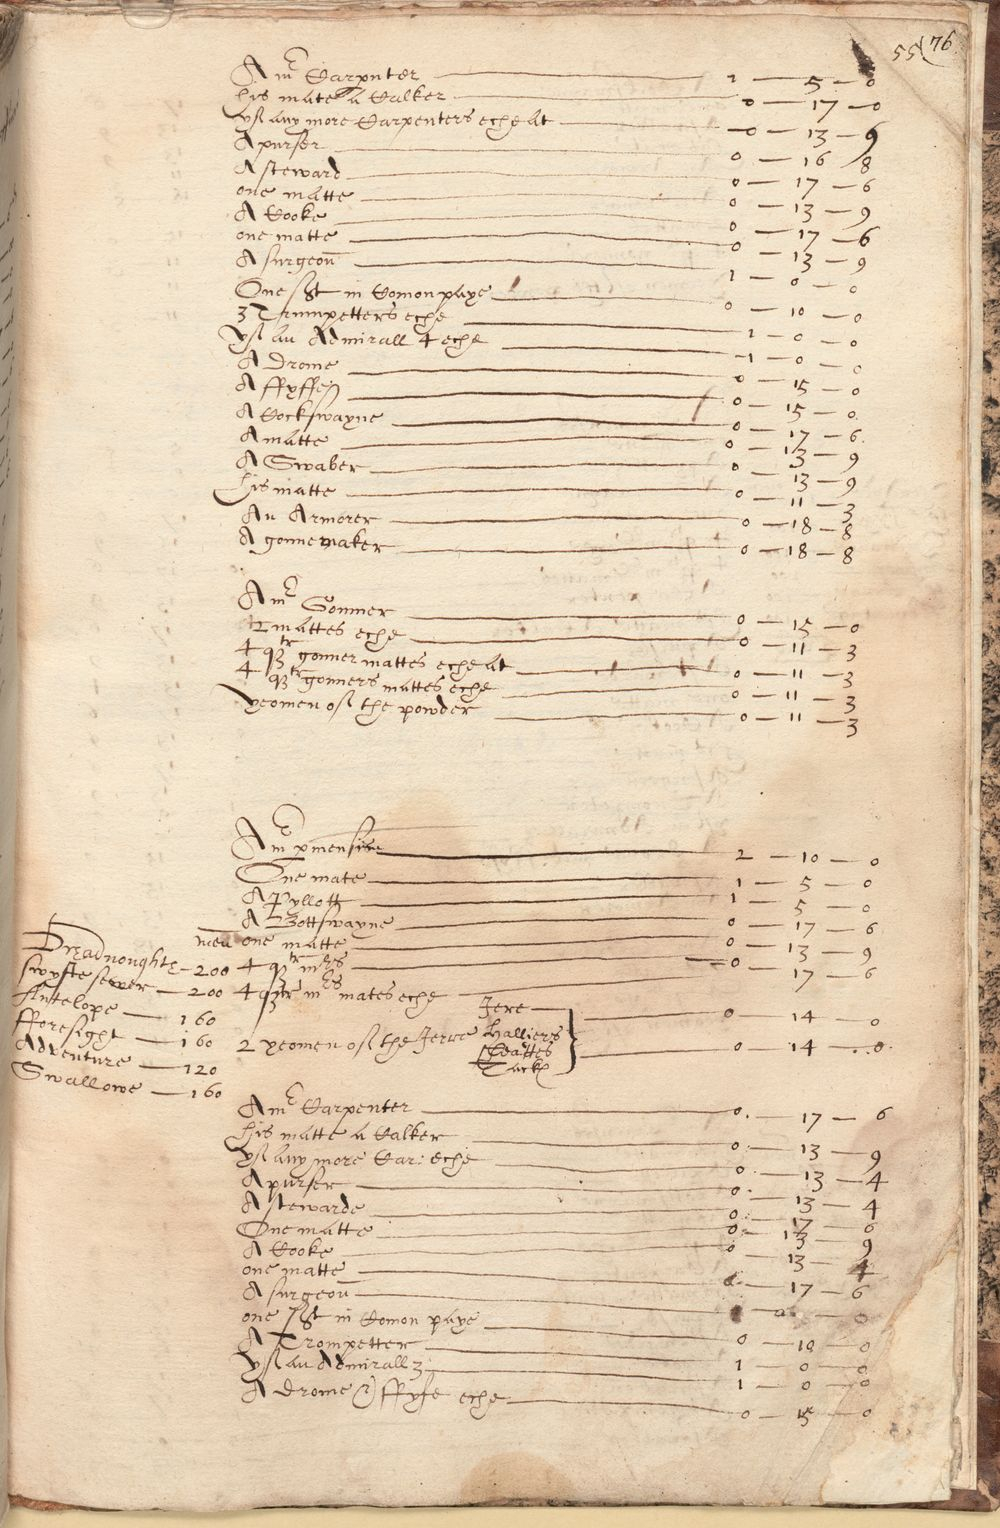 55 76
A mr Carpnter — 1 — 5 — 0
his mate a Calker — 0 — 17 — 0
yf any more Carpenters eche at — 0 — 13 — 6
A purser — 0 — 16 8
A steward — 0 — 17 — 6
one matte — 0 — 13 — 9
A Cooke — 0 — 17 — 6
one matte — 0 — 13 — 9
A surgeon — 1 — 0 — 0
One in Comon paye — 0 — 10 — 0
3 Trumpetters eche — 1 — 0 — 0
yf an Admirall 4 eche — 1 — 0 — 0
A Drome — 0 — 15 — 0
A ffyffe — 0 — 15 — 0
A Cockswayne — 0 — 17 — 6
A matte — 0 — 13 — 9
A Swaber — 0 — 13 — 9
his matte — 0 — 11 — 3
An Armorer — 0 — 18 — 8
A gonnemaker — 0 — 18 — 8
A mr Gonner — 0 — 15 — 0
2 mattes eche — 0 — 11 — 3
4 qtr gonner mattes eche at — 0 — 11 — 3
4 qtr gonners mattes eche — 0 — 11 — 3
yeomen of the powder — 0 — 11 — 3
A mr — 2 — 10 — 0
One mate — 1 — 5 — 0
A Pyllott — 1 — 5 — 0
A Bottswayne — 0 — 17 — 6
one matte — 0 — 13 — 9
4 qtr mrs — 0 — 17 — 6
4 qtr mrs mates eche — 0 — 14 — 0
2 yeomen of the Jerne Jere Halliers Sheattes Tack — 0 — 14 — 0
men
Dreadnoughte — 200
Swyftesewer — 200
Antelope — 160
fforesight — 160
Adventure — 120
Swallowe — 160
A mr Carpenter — 0 — 17 — 6
his matte a Calker — 0 — 13 — 9
yf any more Car: eche — 0 — 13 — 4
A purser — 0 — 13 — 4
A stewarde — 0 — 17 — 6
One matte — 0 — 13 — 9
A Cooke — 0 — 13 — 4
one matte
A surgeon — 17 — 6
one in Comon paye — 0 — 10 — 0
A Trompetter — 1 — 0 — 0
yf an Admirall 3 — 1 — 0 — 0
A drome & ffyfe eche — 0 — 15 — 0